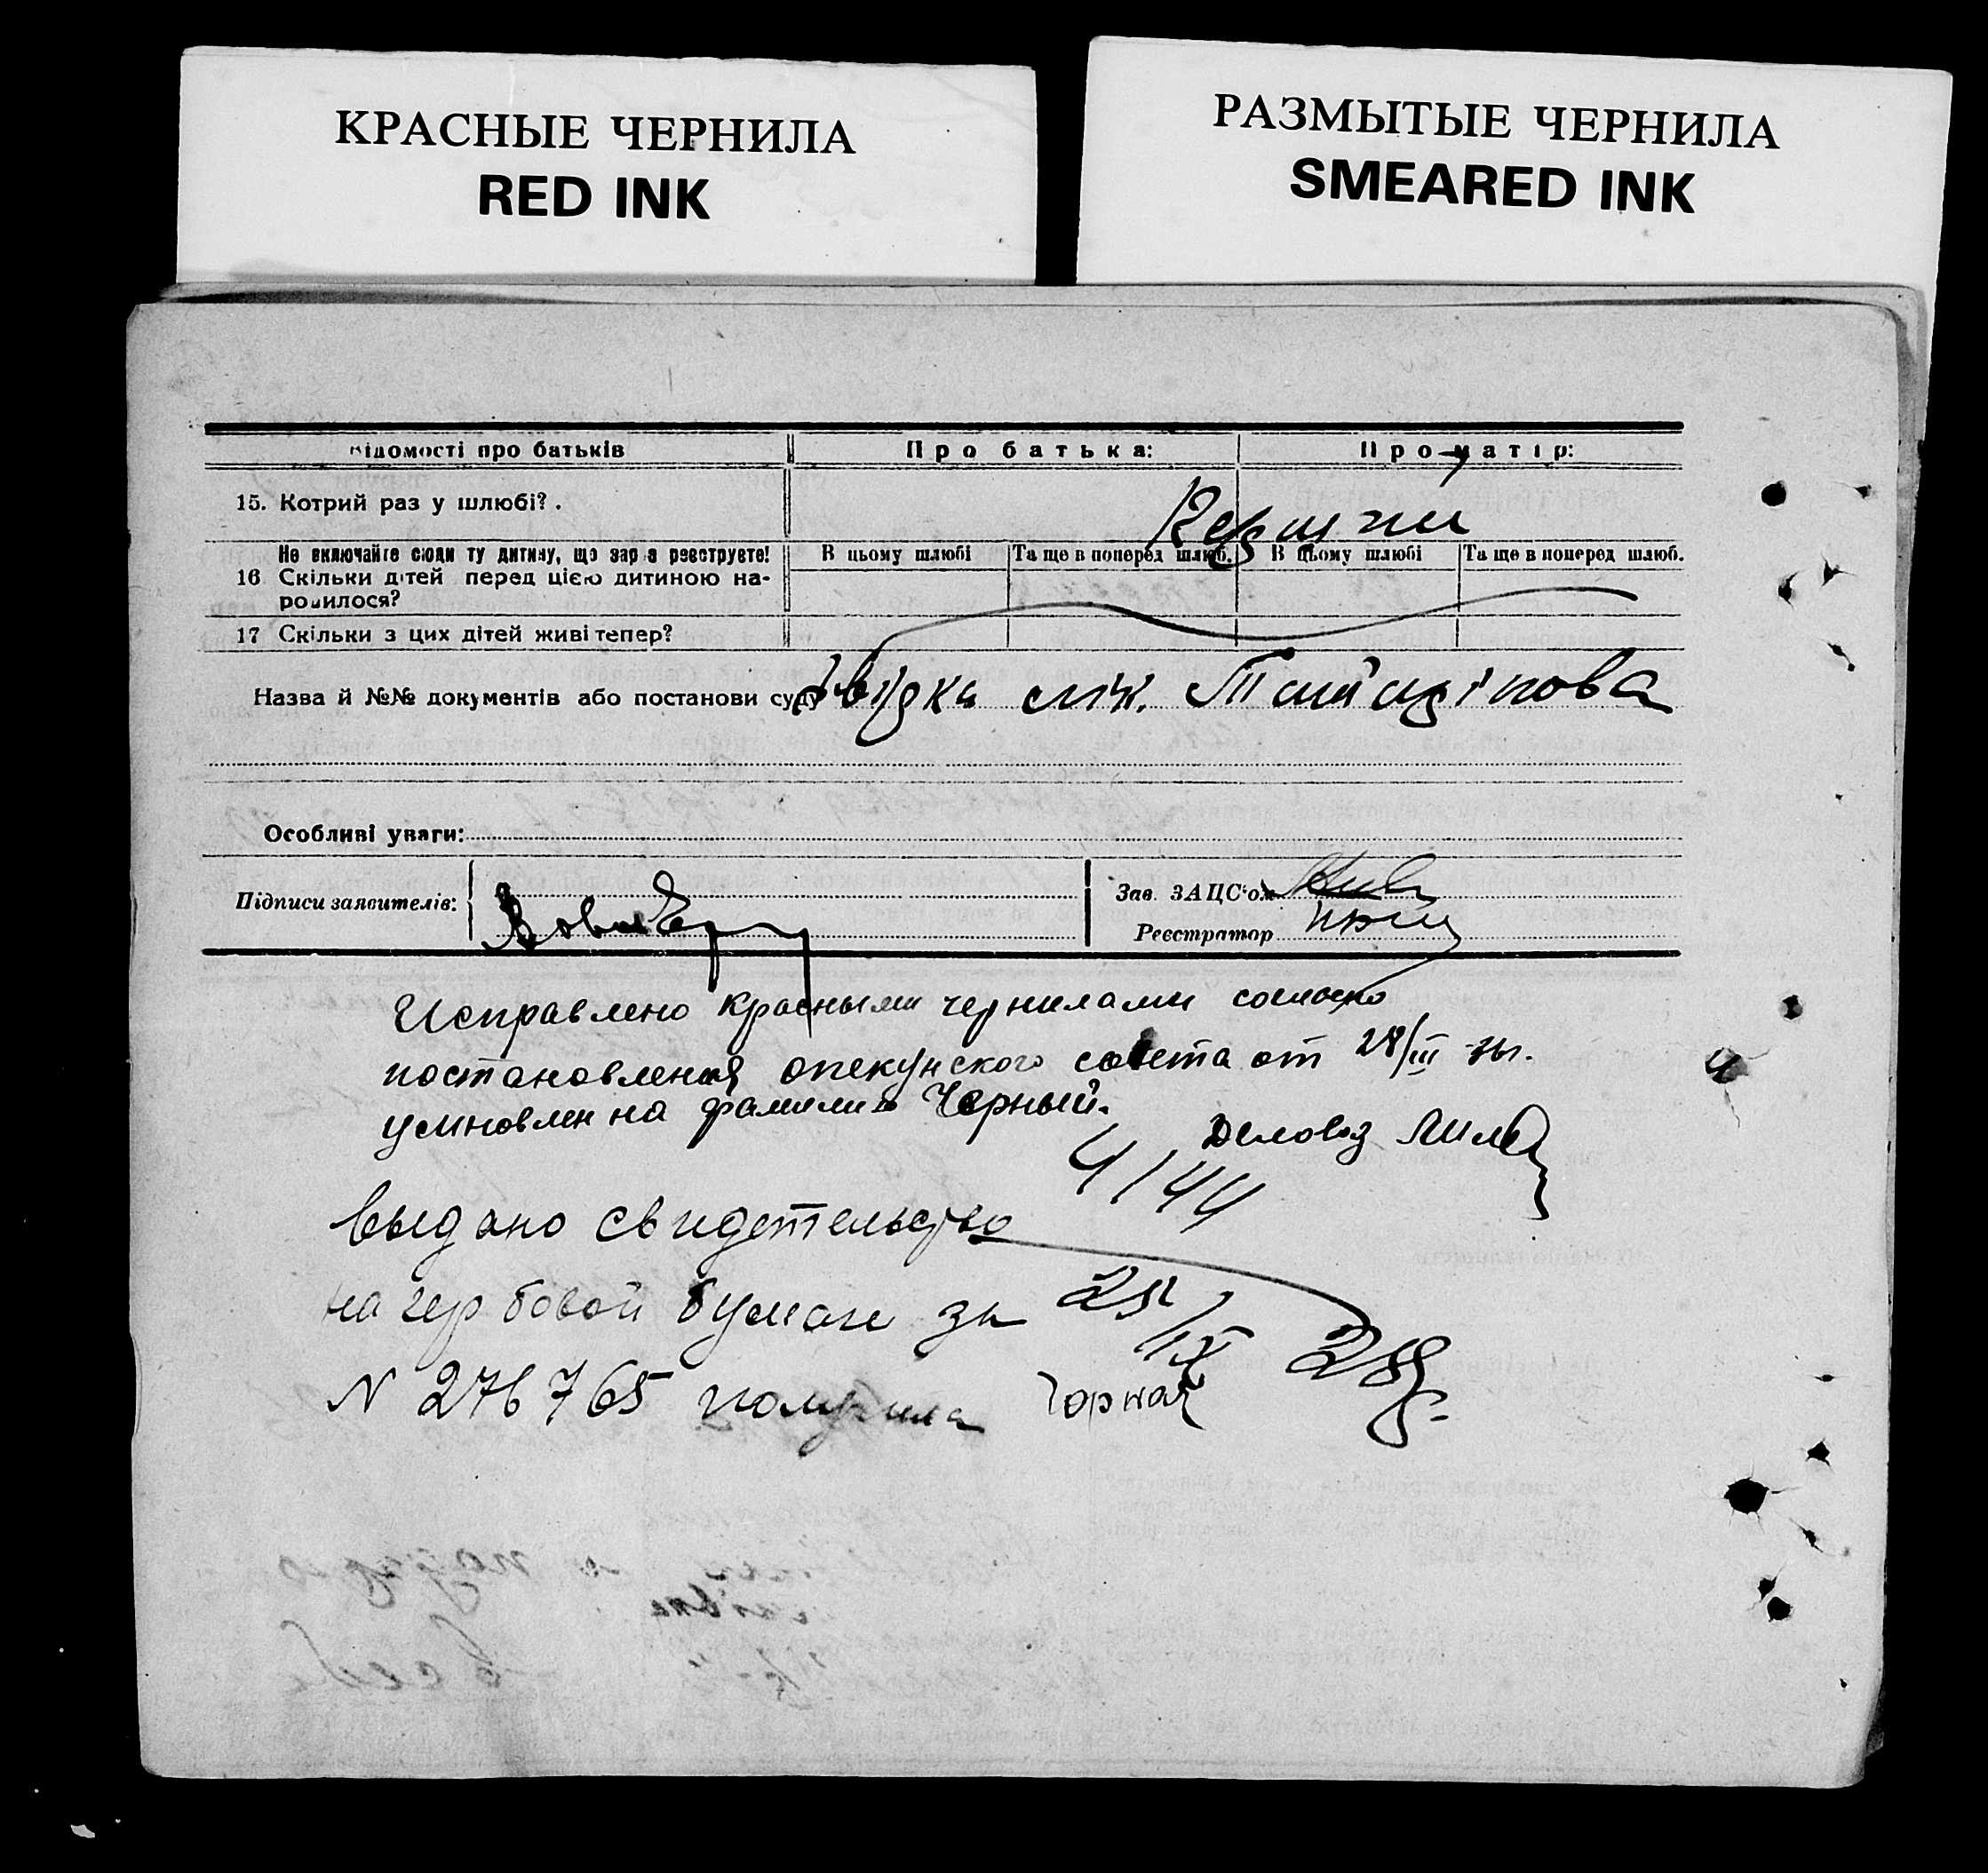 КРАСНЫЕ ЧЕРНИЛА
RED INK
РАЗМЫТЫЕ ЧЕРНИЛА
SMEARED INK
Відомості про батьків Про батька: Про матір:
15. Котрий раз у шлюбі?.
Не включайте сюди ту дитину, що зараз реєструєте! В цьому шлюбі Та ще в поперед шлюб. В цьому шлюбі Та ще в поперед шлюб.
16 Скільки дітей перед цією дитиною на-
родилося?
17 Скільки з цих дітей живі тепер?
Назва й №№ документів або постанови суду
Особливі уваги:
Підписи заявителів:
Зав. ЗАЦС'ом
Реєстратор
Исправлено красными чернилами согласно
постановления опекунского совета от 28/III
усыновлен на фамилию Черный.
Деловод
4144
Выдано свидетельство
на гербовой бумаге за 25/IX
N 276765 получила Чорная